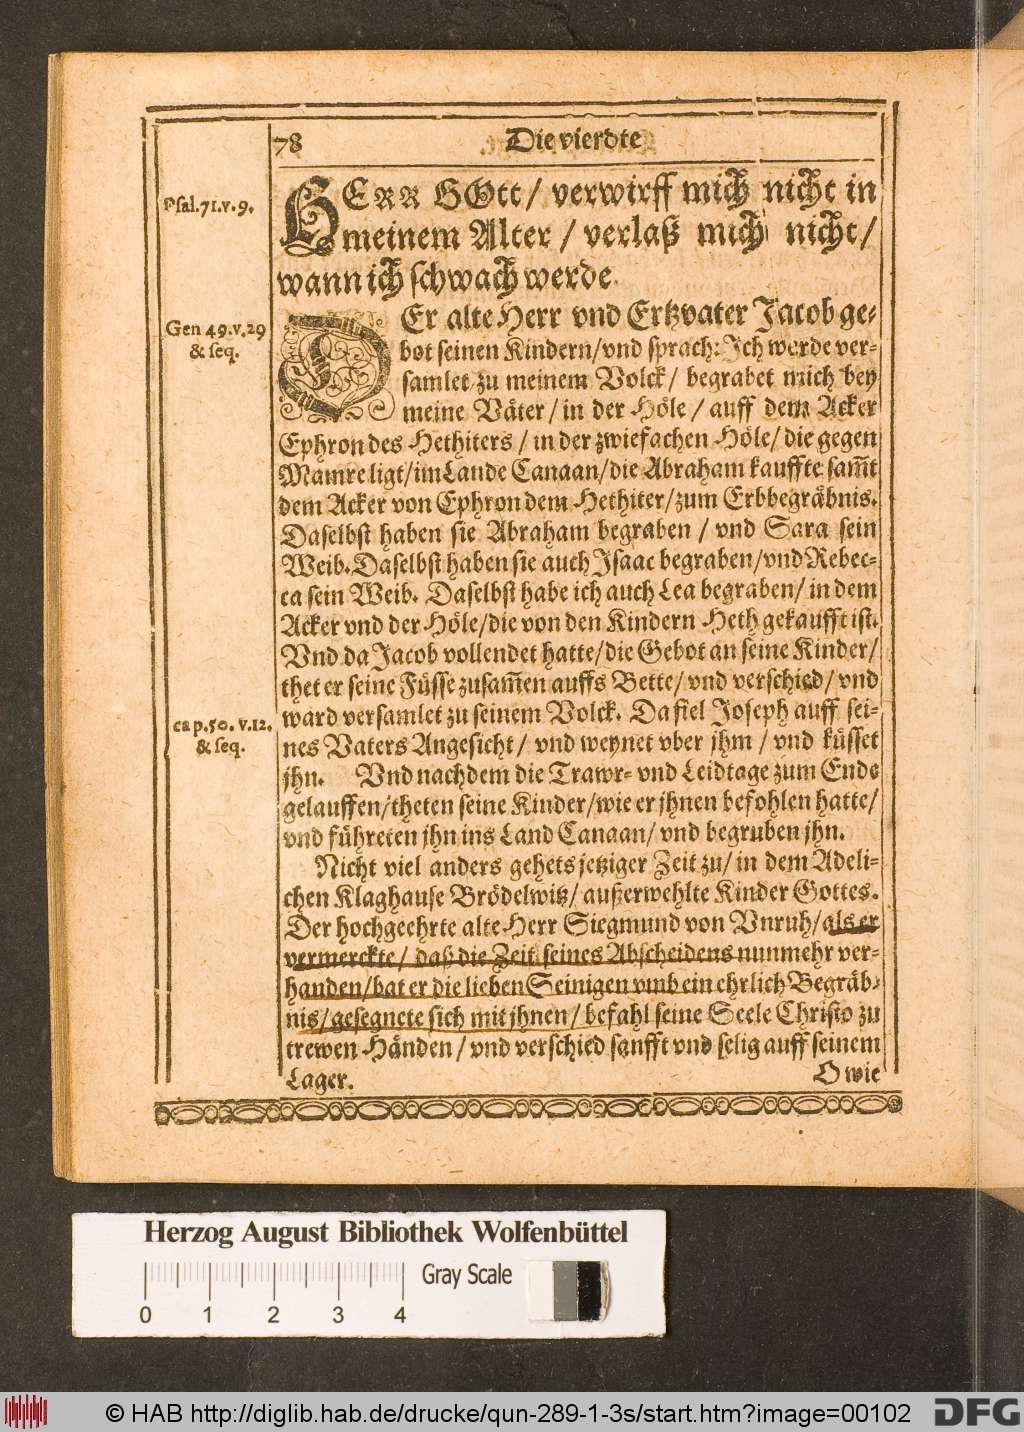 78 Die vierdte
Psal.71.v.9.
HERR GOtt/ verwirff mich nicht in
meinem Alter/ verlaß mich nicht/
wann ich schwach werde.
Gen 49.v.29
& seq.
DEr alte Herr vnd Ertzvater Jacob ge-
bot seinen Kindern/vnd sprach: Ich werde ver-
samlet zu meinem Volck/ begrabet mich bey
meine Väter/ in der Höle/ auff dem Acker
Ephron des Hethiters/ in der zwiefachen Höle/ die gegen
Mamre ligt/im Lande Canaan/die Abraham kauffte sam̃t
dem Acker von Ephron dem Hethiter/zum Erbbegräbnis.
Daselbst haben sie Abraham begraben/ vnd Sara sein
Weib. Daselbst haben sie auch Isaac begraben/vnd Rebec-
ca sein Weib. Daselbst habe ich auch Lea begraben/ in dem
Acker vnd der Höle/die von den Kindern Heth gekaufft ist.
Vnd da Jacob vollendet hatte/die Gebot an seine Kinder/
thet er seine Füsse zusam̃en auffs Bette/ vnd verschied/ vnd
ward versamlet zu seinem Volck. Da fiel Joseph auff sei-
cap.50. v.12.
& seq.
nes Vaters Angesicht/ vnd weynet vber jhm/ vnd küsset
jhn. Vnd nachdem die Trawr- vnd Leidtage zum Ende
gelauffen/theten seine Kinder/wie er jhnen befohlen hatte/
vnd führeten jhn ins Land Canaan/ vnd begruben jhn.
Nicht viel anders gehets jetziger Zeit zu/ in dem Adeli-
chen Klaghause Brödelwitz/ außerwehlte Kinder Gottes.
Der hochgeehrte alte Herr Siegmund von Vnruh/als er
vermerckte/ daß die Zeit seines Abscheidens nunmehr ver-
handen/bat er die lieben Seinigen vmb ein ehrlich Begräb-
nis/gesegnete sich mit jhnen/ befahl seine Seele Christo zu
trewen Händen/ vnd verschied sanfft vnd selig auff seinem
Lager.
O wie
Herzog August Bibliothek Wolfenbüttel
Gray Scale
0 1 2 3 4
© HAB http://diglib.hab.de/drucke/qun-289-1-3s/start.htm?image=00102
DFG